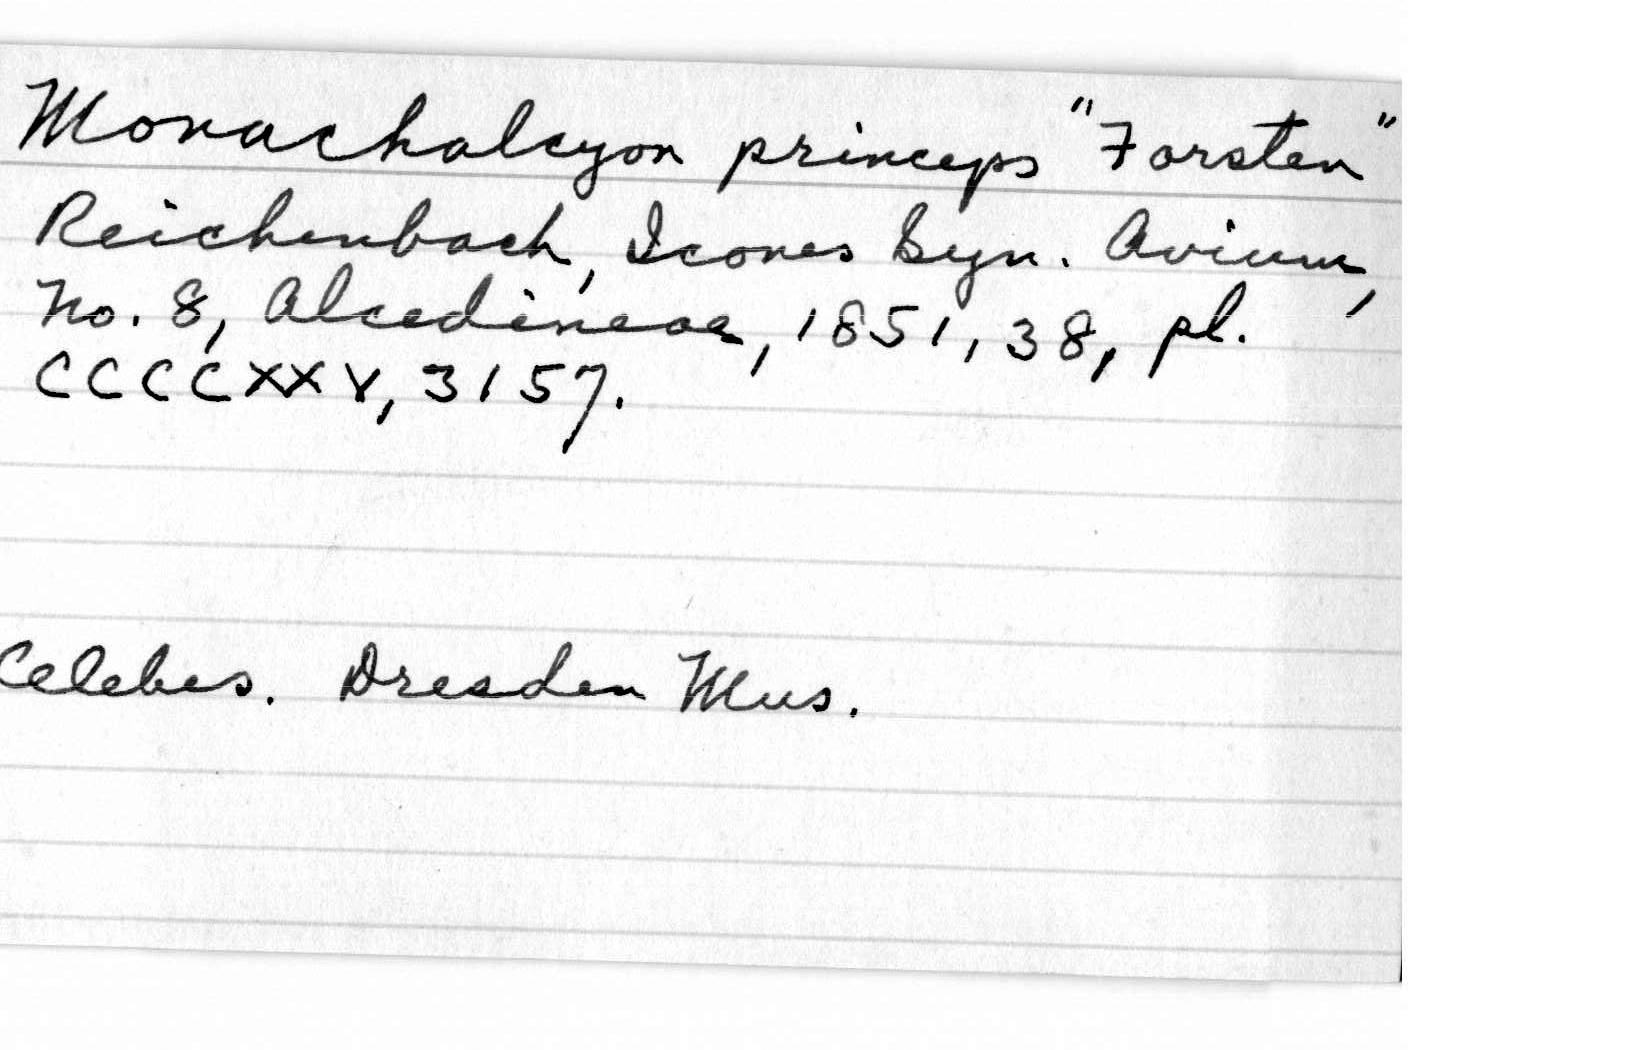 Monachalcyon princeps "Forsten"
Reichenbach, Icones Syn. Avium,
No. 8, Alcedineae, 1851, 38, pl.
CCCCXXV, 3157.
Celebes. Dresden Mus.